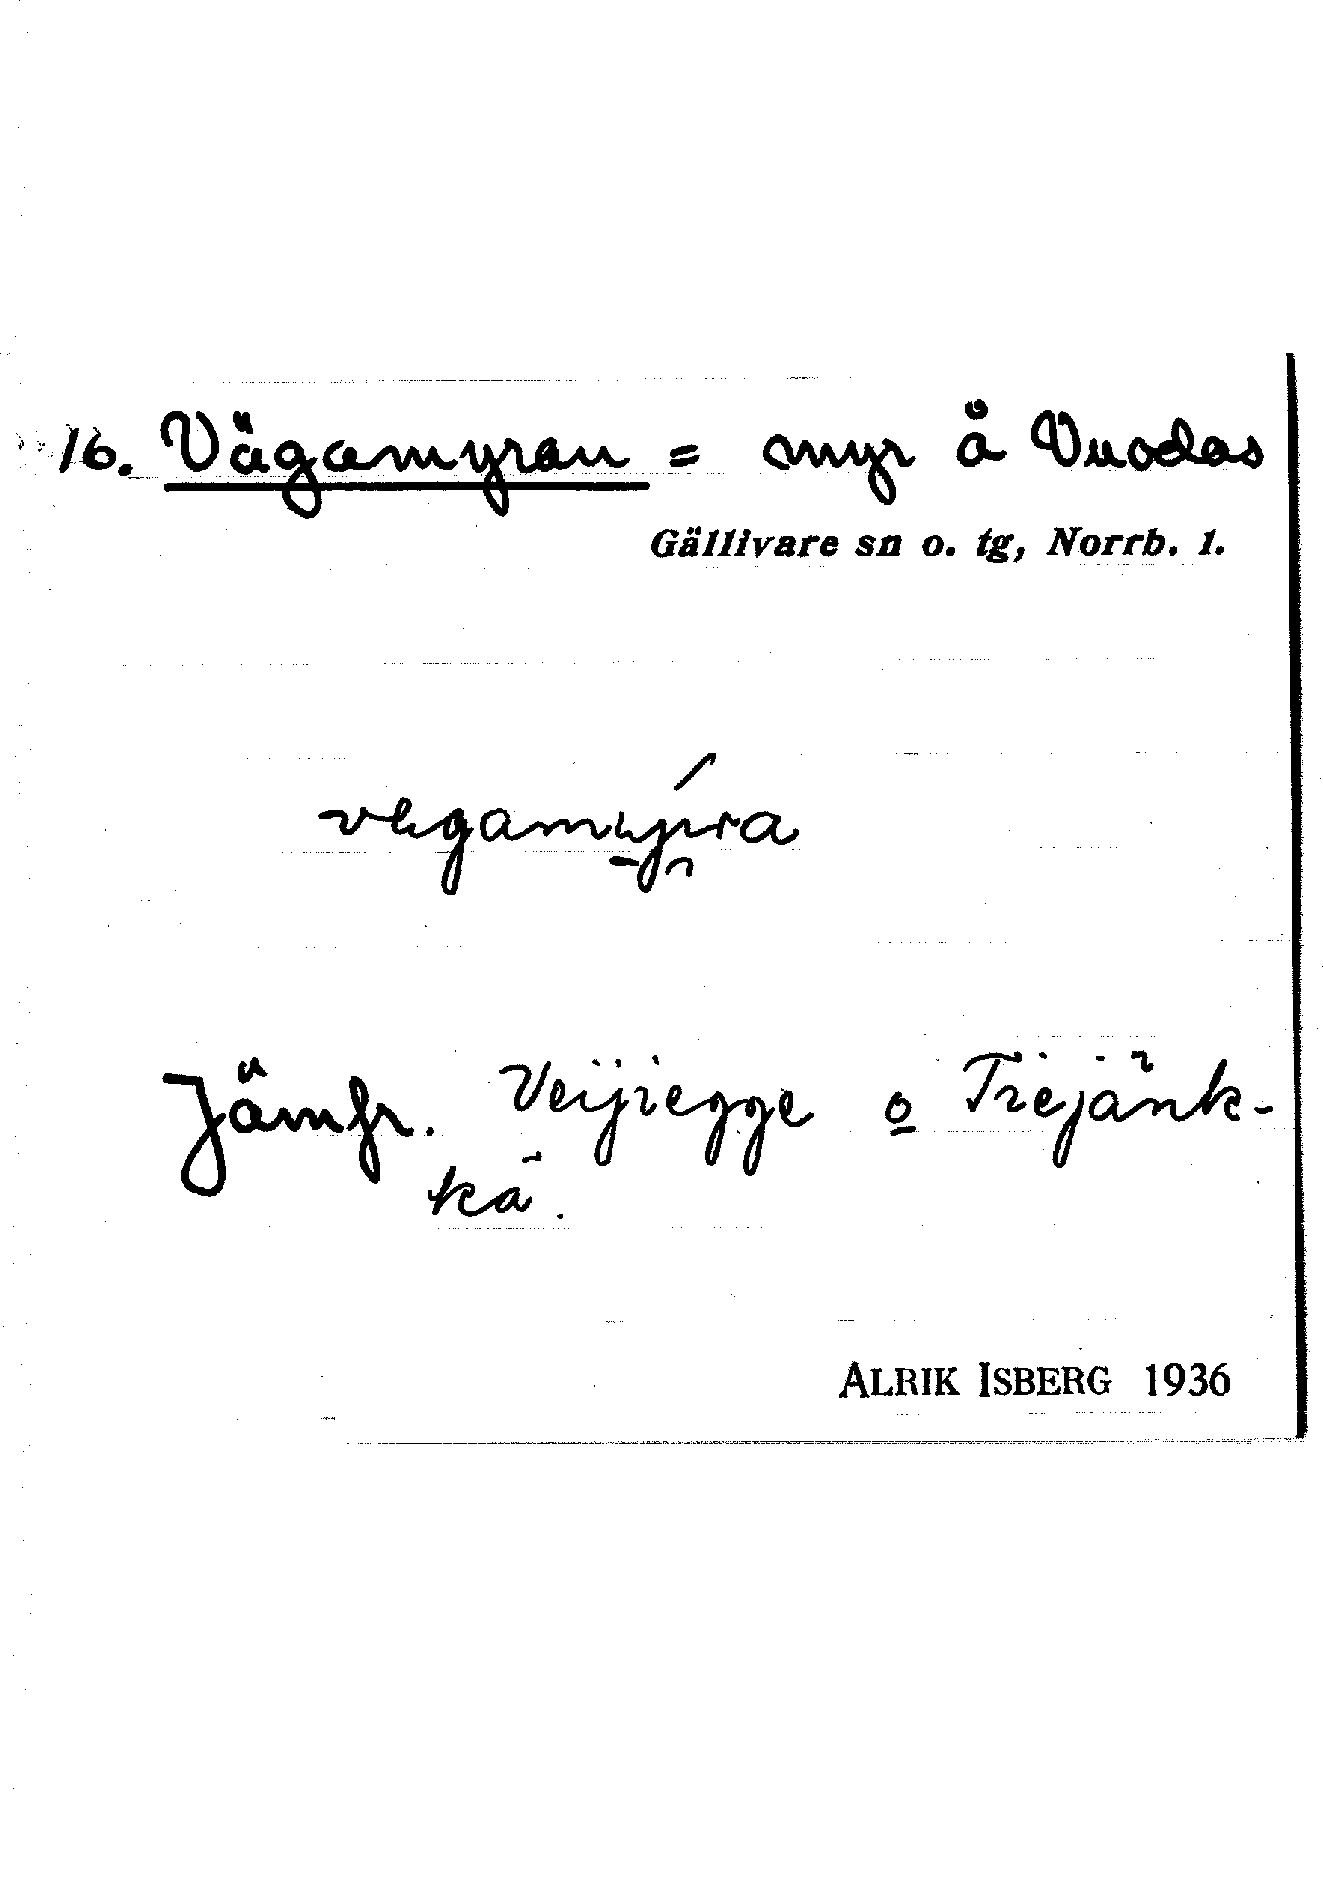 16. Vägamyran = myr å Vuodas
Gällivare sn o. tg, Norrb. l.
vegamyra
Jämfr. Veijiegge o Tiejänk-
kä.
ALRIK ISBERG 1936